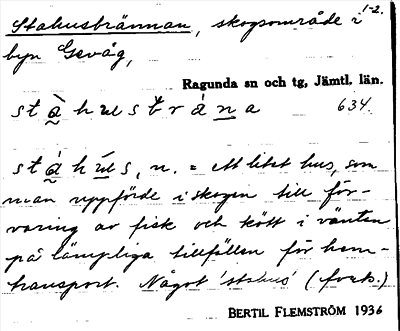 Stahusbrännan, skogsområde i 1-2.
byn Gevåg,
Ragunda sn och tg, Jämtl. län.
634.
stá h ús, n. = ett litet hus, som
man uppförde i skogen till för-
varing av fisk och kött i väntan
på lämpliga tillfällen för hem-
transport. Något 'stahus' (
BERTIL FLEMSTRÖM 1936